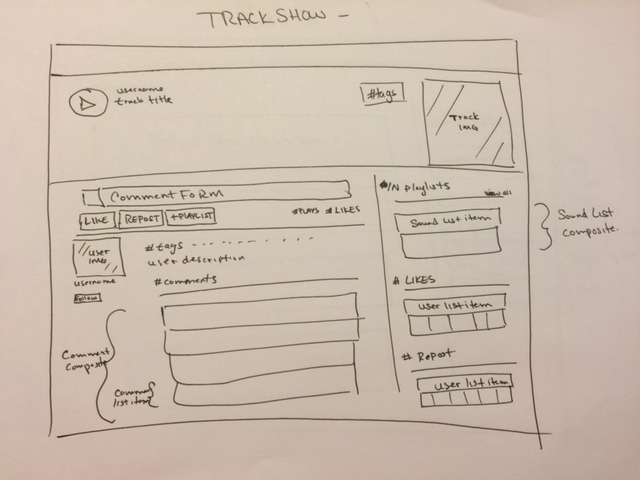 TRACK SHOW -
username
track title
#tags
Track
IMG
Comment FORM
LIKE
REPOST
+PLAYLIST
#PLAYS # LIKES
user
IMG
username
Follow
#tags
user description
# comments
Comment
Composite
Comment
list item
#/N playlists
view all
Sound List item
Sound List
Composite.
# LIKES
user list item
# Repost
user list item